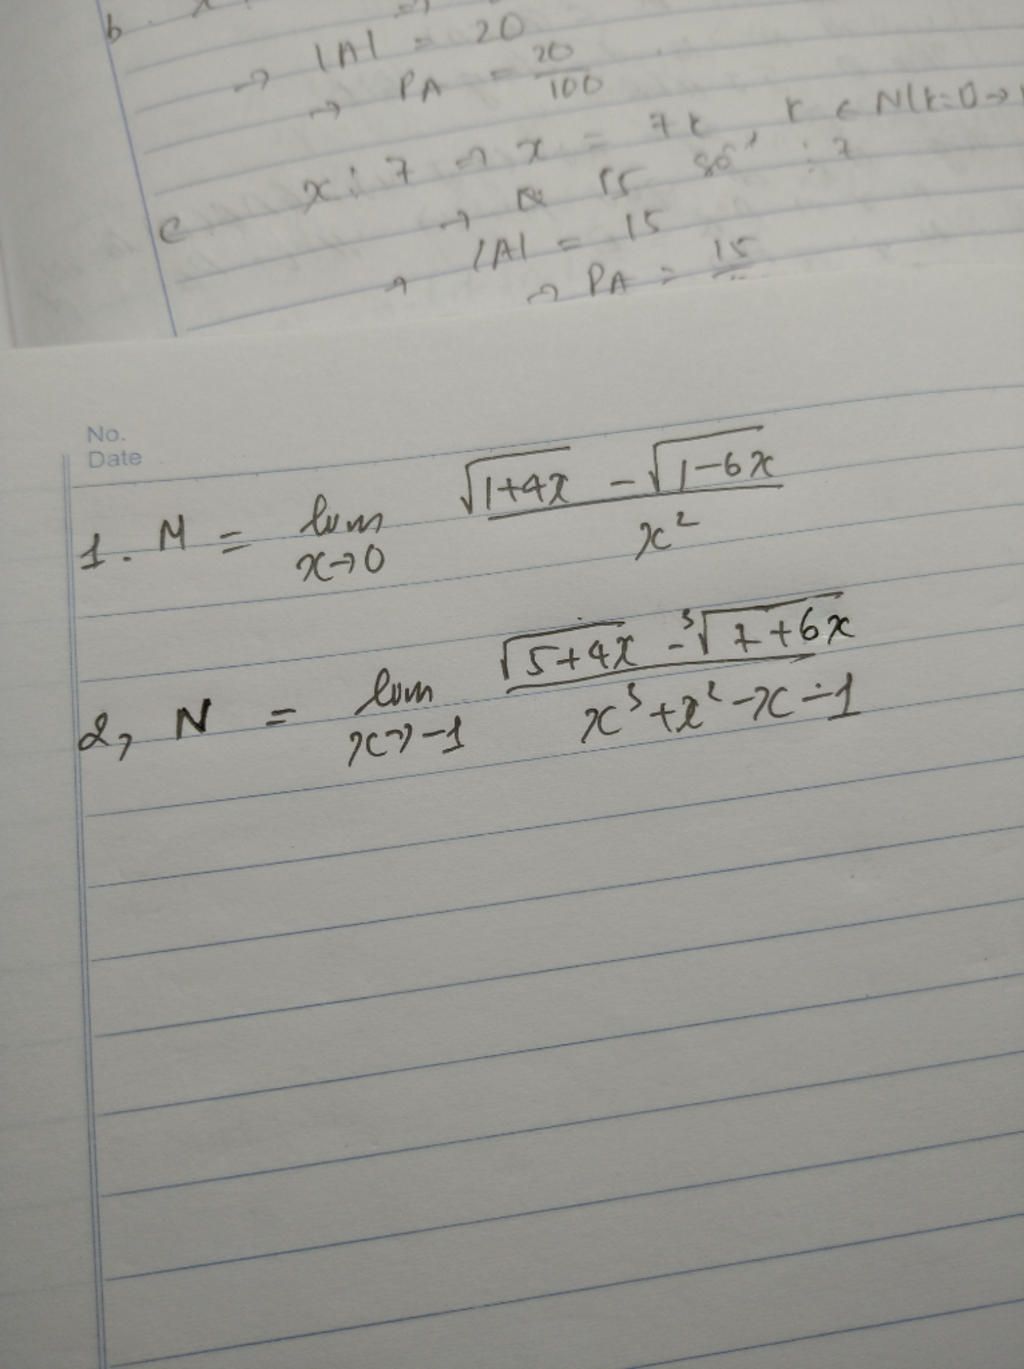 b
→ |A| = 20
→ PA = 20/100
c x ⋮ 7 → x = 7k, k ∈ N(k=0→
⋮ 7
→ |A| = 15
→ PA = 15
No.
Date
1. M = lim x→0 (√(1+4x) - √(1-6x))/x²
2, N = lim x→-1 (√(5+4x) - ³√(7+6x))/(x³+x²-x-1)